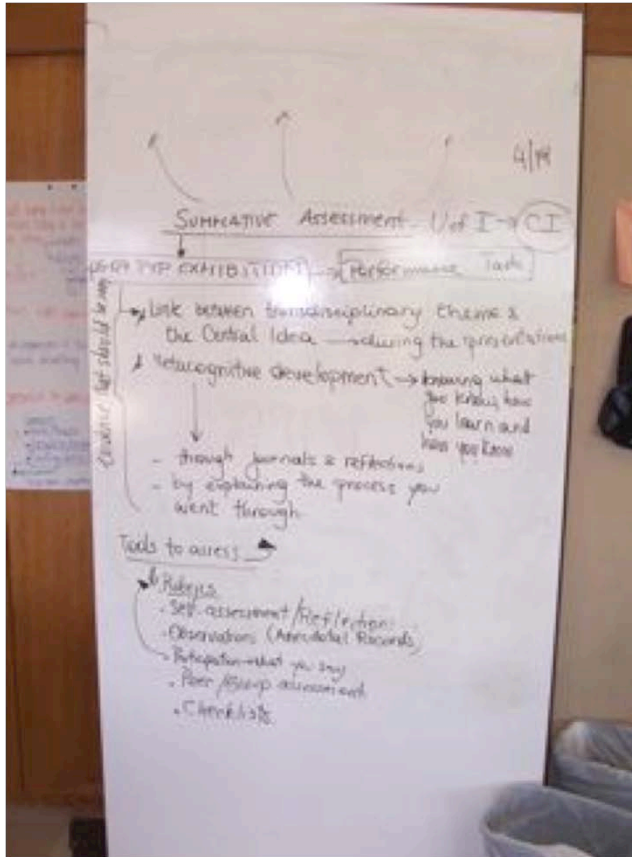 4/19
SUMMATIVE Assessment - U of I → CI
PYP EXHIBITION → Performance Task
Link between transdisciplinary theme &
the Central Idea → during the presentations
Metacognitive development → knowing what
you know, how
you learn and
how you know
- through journals & reflections
- by explaining the process you
went through
Tools to assess
Rubrics
. Self-assessment/Reflection
. Observations (Anecdotal Records)
. Participation - what you say
. Peer/Group assessment
. Checklists